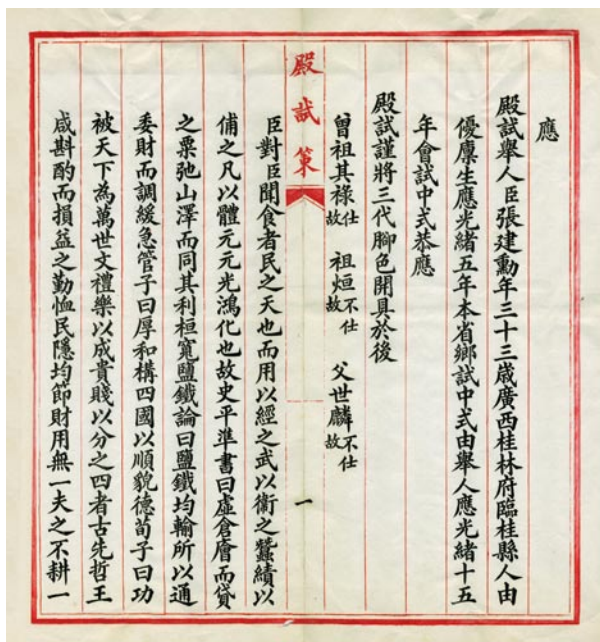 應
殿試舉人臣張建勳年三十三歲廣西桂林府臨桂縣人由
優廩生應光緒五年本省鄉試中式由舉人應光緒十五
年會試中式恭應
殿試謹將三代腳色開具於後
曾祖其祿仕故 祖烜不仕故 父世麟不仕故
殿試策
一
臣對臣聞食者民之天也而用以經之武以衛之蠶績以
俌之凡以體元元光鴻化也故史平準書曰虛倉廥而貸
之粟弛山澤而同其利桓寬鹽鐵論曰鹽鐵均輸所以通
委財而調緩急管子曰厚和構四國以順貌德荀子曰功
被天下為萬世文禮樂以成貴賤以分之四者古先哲王
咸斟酌而損益之勤恤民隱均節財用無一夫之不耕一